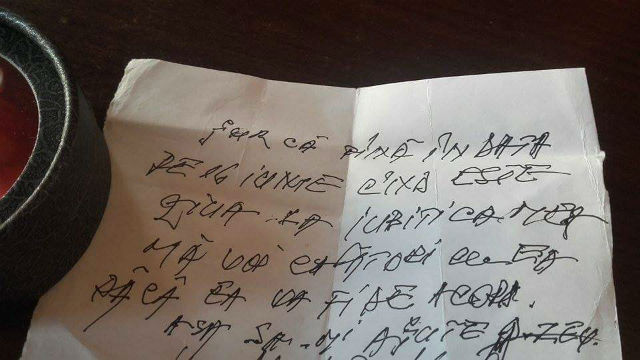 JUR CĂ PÎNĂ ÎN DATA
DE 16 IUNIE CÎND ESTE
ZIUA LA IUBITICA MEA
MĂ VOI CĂSĂTORI CU EA
DACĂ EA VA FI DE ACORD.
AȘA SĂ-MI AJUTE D-ZEU.